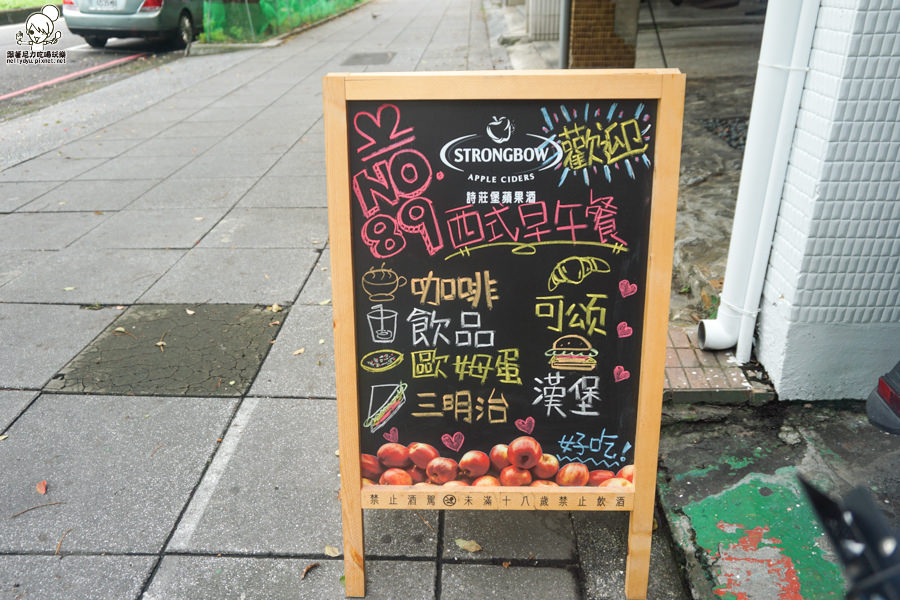 跟著尼力吃喝玩樂
nellydyu.pixnet.net
NO.
89
STRONGBOW
APPLE CIDERS
詩莊堡蘋果酒
歡迎
西式早午餐
咖啡
可頌
飲品
漢堡
歐姆蛋
三明治
好吃!
禁止酒駕 未滿十八歲禁止飲酒